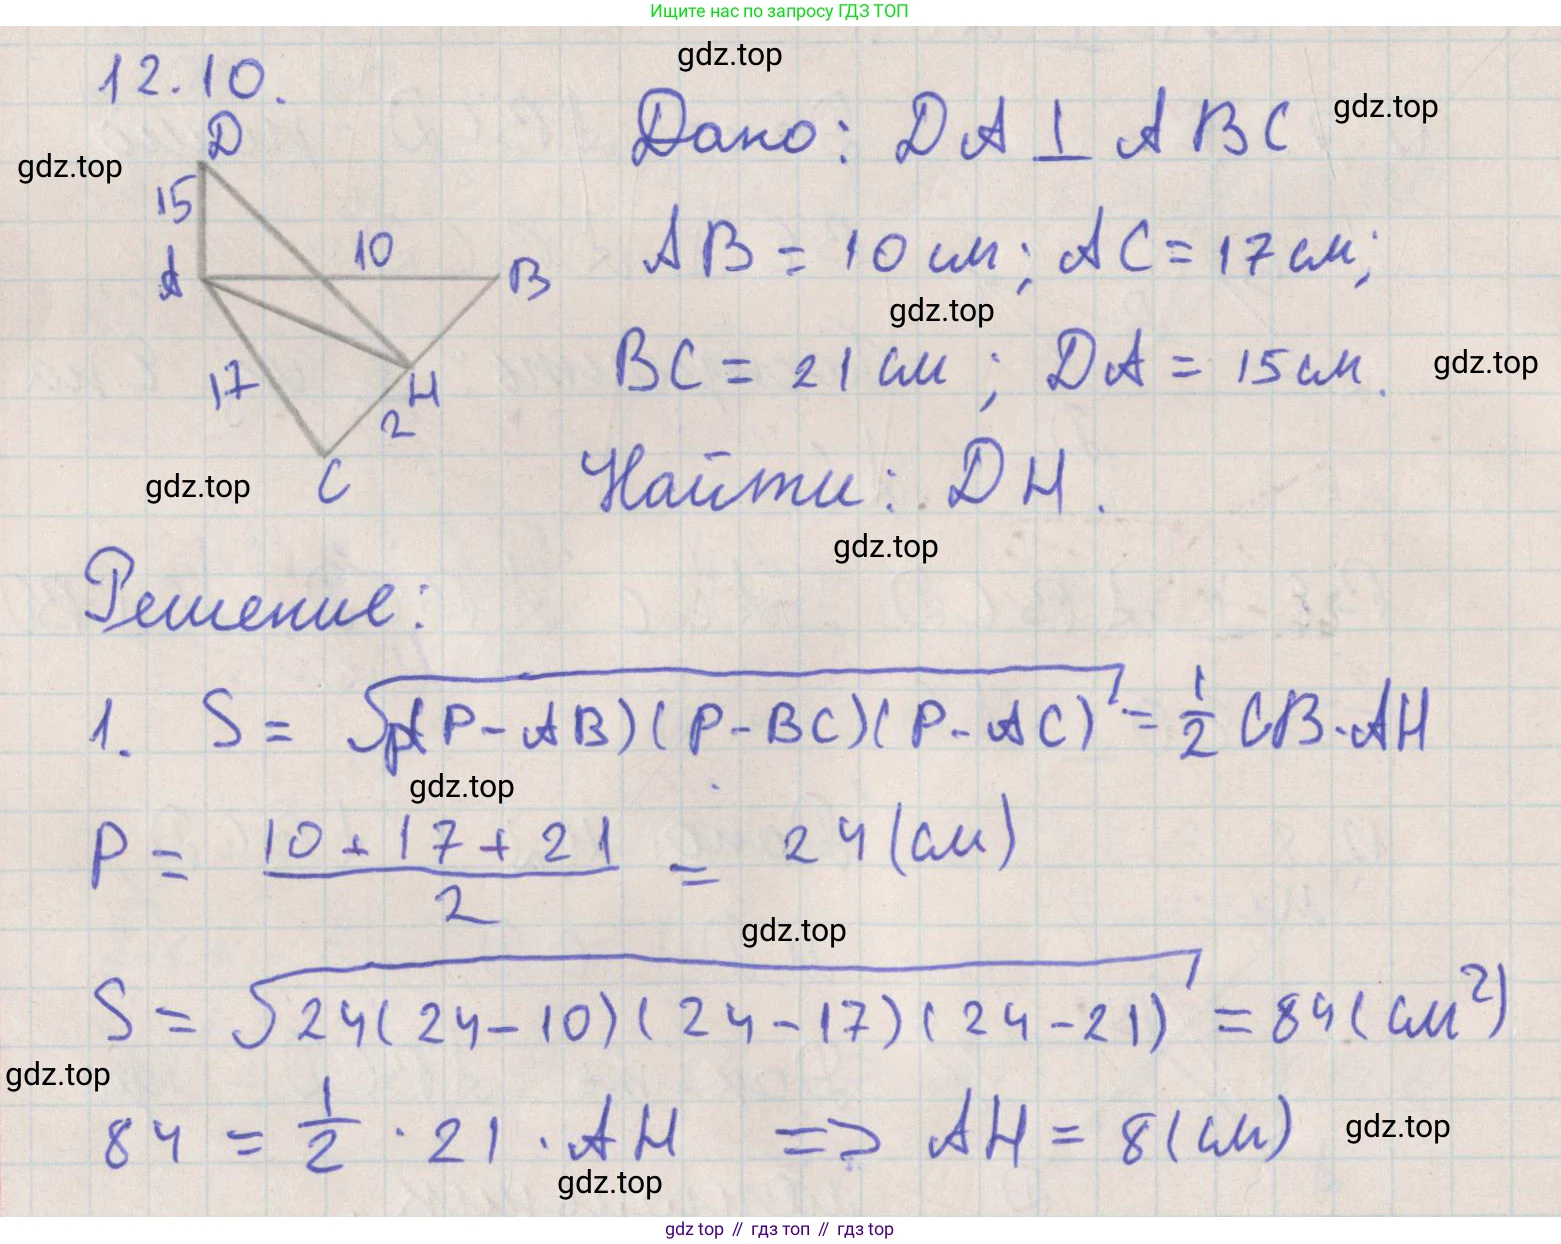 Ищите нас по запросу ГДЗ ТОП
gdz.top
12.10.
Дано: DA ⊥ ABC
gdz.top
D
gdz.top
15
10
AB = 10 см; AC = 17 см;
A
B
gdz.top
17
BC = 21 см; DA = 15 см.
gdz.top
H
2
C
gdz.top
Найти: DH.
gdz.top
Решение:
1. S = √p(P-AB)(P-BC)(P-AC) = 1/2 CB·AH
gdz.top
P = 10+17+21/2 = 24 (см)
gdz.top
S = √24(24-10)(24-17)(24-21) = 84 (см²)
gdz.top
84 = 1/2 · 21 · AH => AH = 8 (см)
gdz.top
gdz.top
gdz top // гдз топ // гдз top